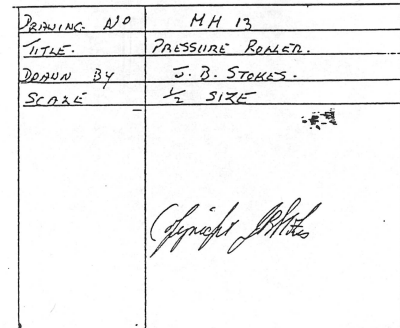 DRAWING NO MH 13
TITLE. PRESSURE ROLLER.
DRAWN BY J. B. STOKES.
SCALE 1/2 SIZE
Copyright JBStokes